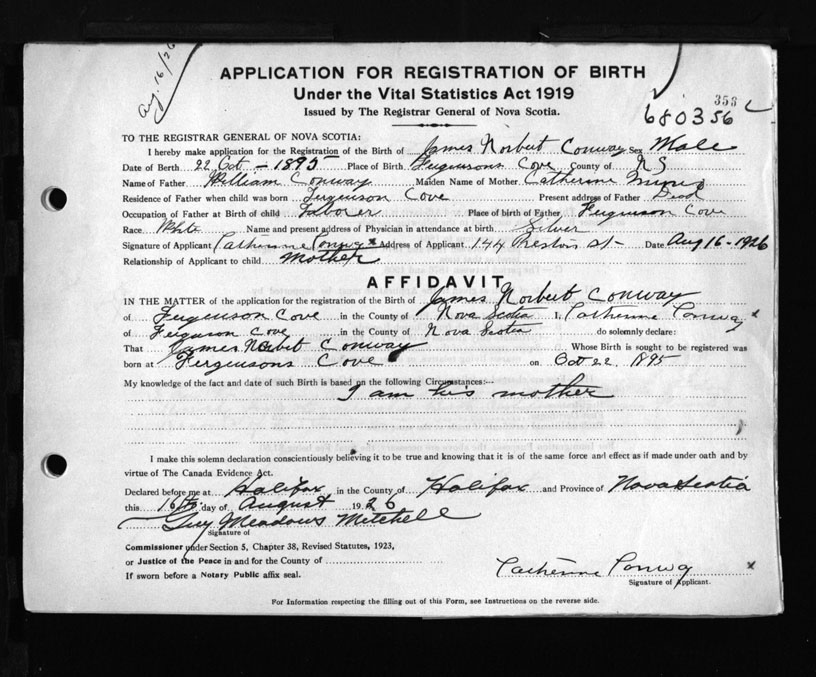 Aug. 16/26
APPLICATION FOR REGISTRATION OF BIRTH
Under the Vital Statistics Act 1919
353
Issued by The Registrar General of Nova Scotia.
680356
TO THE REGISTRAR GENERAL OF NOVA SCOTIA:
I hereby make application for the Registration of the Birth of James Norbert Conway Sex Male
Date of Birth 22 Oct - 1895 Place of Birth Fergusons Cove County of NS
Name of Father William Conway Maiden Name of Mother Catherine
Residence of Father when child was born Ferguson Cove Present address of Father Dead
Occupation of Father at Birth of child Laborer Place of birth of Father Ferguson Cove
Race White Name and present address of Physician in attendance at birth Silver
Signature of Applicant Catherine Conway x Address of Applicant 144 Preston St - Date Aug 16 - 1926
Relationship of Applicant to child Mother
AFFIDAVIT
IN THE MATTER of the application for the registration of the Birth of James Norbert Conway
of Ferguson Cove in the County of Nova Scotia I, Catherine Conway x
of Ferguson Cove in the County of Nova Scotia do solemnly declare:
That James Norbert Conway Whose Birth is sought to be registered was
born at Fergusons Cove on Oct 22 1895
My knowledge of the fact and date of such Birth is based on the following Circumstances:--
I am his mother
I make this solemn declaration conscientiously believing it to be true and knowing that it is of the same force and effect as if made under oath and by
virtue of The Canada Evidence Act.
Declared before me at Halifax in the County of Halifax and Province of Nova Scotia
this 16th day of August 1926
Guy Meadows Mitchell
Signature of
Commissioner under Section 5, Chapter 38, Revised Statutes, 1923,
or Justice of the Peace in and for the County of
If sworn before a Notary Public affix seal.
Catherine Conway x
Signature of Applicant.
For Information respecting the filling out of this Form, see Instructions on the reverse side.